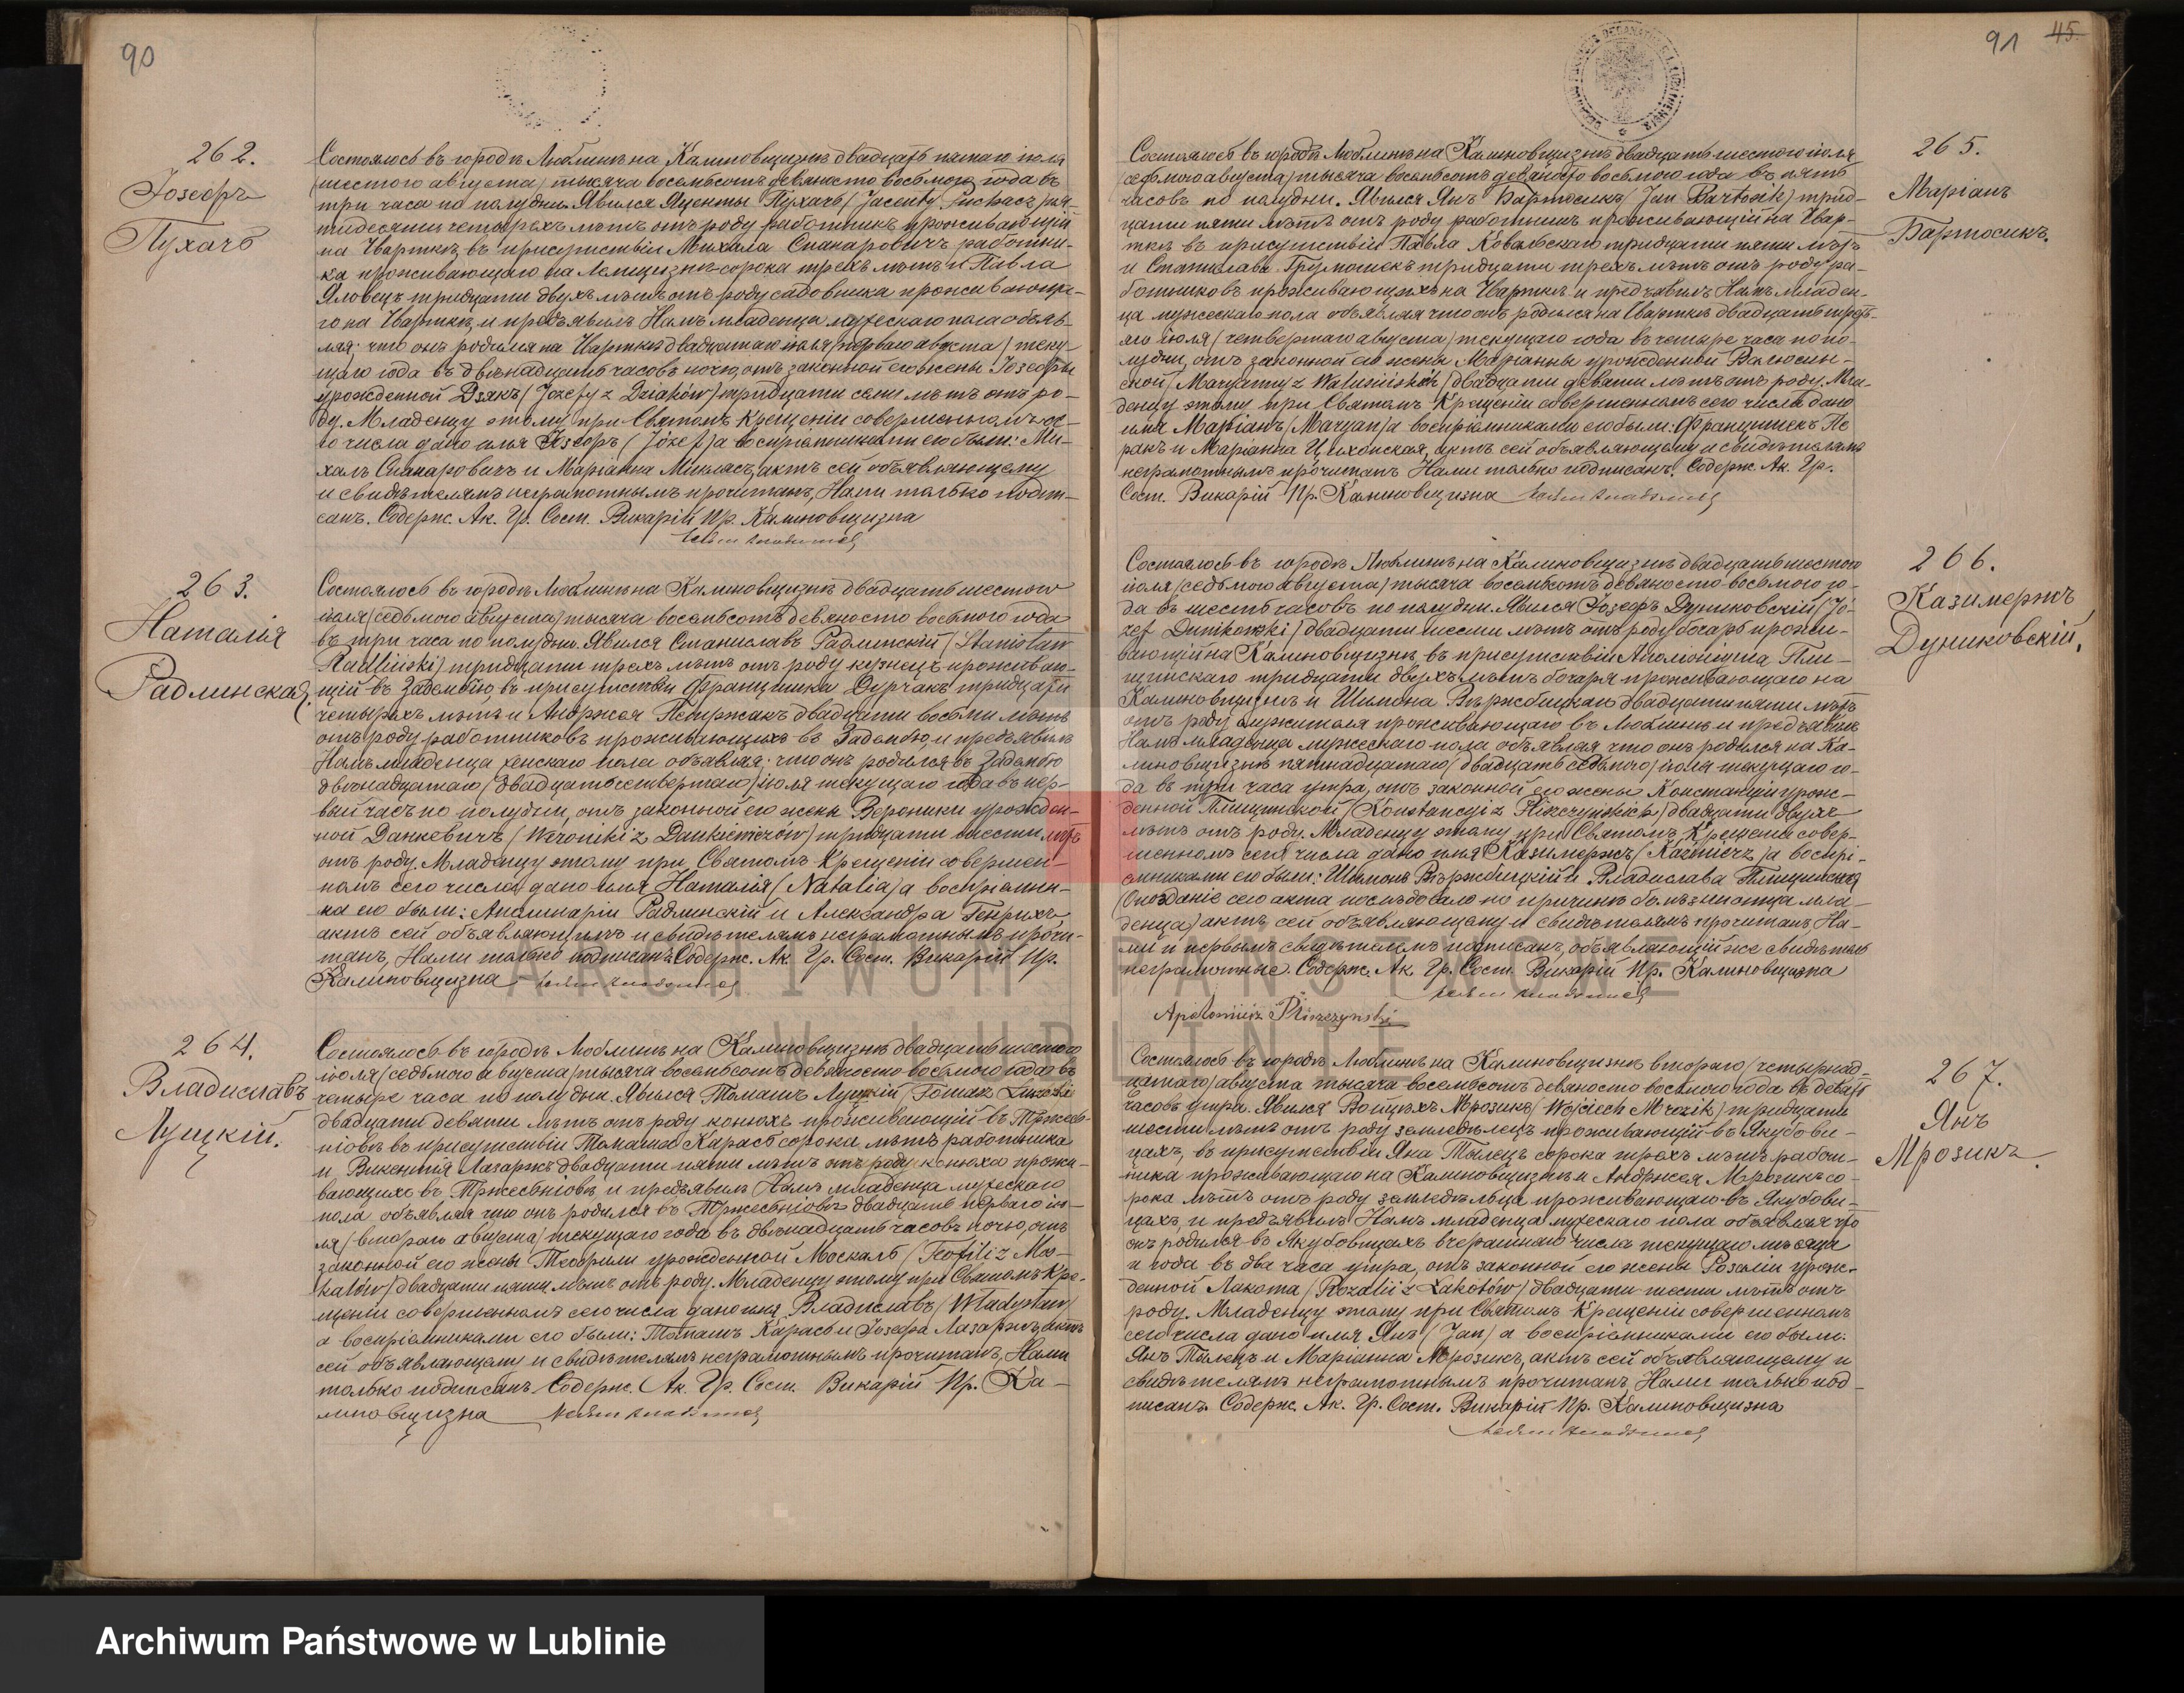 90
262.
Іозефъ
Пухачъ
Состоялось въ городѣ Люблинѣ на Калиновщизнѣ двадцать пятаго іюля
(шестого августа) тысяча восемьсотъ девяносто восьмого года въ
три часа по полудни. Явился Яценты Пухачъ (Jacenty Puchacz) пя-
тидесяти четырехъ лѣтъ отъ роду работникъ проживающій
на Чварткѣ, въ присутствіи Михала Снапаровичъ работни-
ка проживающаго на Лемщизнѣ сорока трехъ лѣтъ и Павла
Яловецъ тридцати двухъ лѣтъ отъ роду садовника проживающа-
го на Чварткѣ, и предъявилъ Намъ младенца мужескаго пола объяв-
ляя, что онъ родился на Чварткѣ двадцатаго іюля (перваго августа) теку-
щаго года въ двѣнадцать часовъ ночю, отъ законной его жены Іозефы
урожденной Дзякъ (Józefy z Dziaków) тридцати семи лѣтъ отъ ро-
ду. Младенцу этому при Святомъ Крещеніи совершенномъ се-
го числа дано имя Іозефъ (Józef) а воспріемниками его были: Ми-
халъ Снапаровичъ и Маріанна Микласъ, актъ сей объявляющему
и свидѣтелямъ неграмотнымъ прочитанъ, Нами только подпи-
санъ. Содерж. Ак. Гр. Сост. Викарій Пр. Калиновщизна
263.
Наталія
Радлинская.
Состоялось въ городѣ Люблинѣ на Калиновщизнѣ двадцать шестого
іюля (седьмого августа) тысяча восемьсотъ девяносто восьмого года
въ три часа по полудни. Явился Станиславъ Радлинскій (Stanisław
Radliński) тридцати трехъ лѣтъ отъ роду кузнецъ проживаю-
щій въ Задембю, въ присутствіи Францишка Дурчакъ тридцати
четырехъ лѣтъ и Анджея Петржакъ двадцати восьми лѣтъ
отъ роду работниковъ проживающихъ въ Задембю, и предъявилъ
Намъ младенца женскаго пола объявляя, что онъ родился въ Задембю
двѣнадцатаго (двадцать четвертаго) іюля текущаго года въ пер-
вый часъ по полудни, отъ законной его жены Вероники урожден-
ной Данкевичъ (Weroniki z Dankiewiczów) тридцати шести лѣтъ
отъ роду. Младенцу этому при Святомъ Крещеніи совершен-
номъ сего числа дано имя Наталія (Natalia) а воспріемни-
ка его были: Аполинарій Радлинскій и Александра Генрихъ,
актъ сей объявляющимъ и свидѣтелямъ неграмотнымъ прочи-
танъ, Нами только подписанъ. Содерж. Ак. Гр. Сост. Викарій Пр.
Калиновщизна
264.
Владиславъ
Луцкій.
Состоялось въ городѣ Люблинѣ на Калиновщизнѣ двадцать шестого
іюля (седьмого августа) тысяча восемьсотъ девяносто восьмого года въ
четыре часа по полудни. Явился Томашъ Луцкій (Tomasz Łucki)
двадцати девяти лѣтъ отъ роду конюхъ проживающій въ Тржесь-
ніовѣ въ присутствіи Томаша Карась сорока лѣтъ работника
и Викентія Лазаржъ двадцати пяти лѣтъ отъ роду конюха прожи-
вающихъ въ Тржесьніовѣ и предъявилъ Намъ младенца мужескаго
пола объявляя что онъ родился въ Тржесьніовѣ двадцать перваго ію-
ля (второго августа) текущаго года въ двѣнадцать часовъ ночю, отъ
законной его жены Теофили урожденной Москаль (Teofili z Mos-
kalów) двадцати пяти лѣтъ отъ роду. Младенцу этому при Святомъ Кре-
щеніи совершенномъ сего числа дано имя Владиславъ (Władysław)
а воспріемниками его были: Томашъ Карась и Іозефа Лазаржъ, актъ
сей объявляющему и свидѣтелямъ неграмотнымъ прочитанъ, Нами
только подписанъ Содерж. Ак. Гр. Сост. Викарій Пр. Ка-
линовщизна
91 45
265.
Маріанъ
Бартосикъ.
Состоялось въ городѣ Люблинѣ на Калиновщизнѣ двадцать шестого іюля
(седьмого августа) тысяча восемьсотъ девяносто восьмого года въ пять
часовъ по полудни. Явился Янъ Бартосикъ (Jan Bartosik) трид-
цати пяти лѣтъ отъ роду работникъ проживающій на Чвар-
ткѣ въ присутствіи Павла Ковальскаго тридцати пяти лѣтъ
и Станислава тридцати трехъ лѣтъ отъ роду ра-
ботниковъ проживающихъ на Чварткѣ и предъявилъ Намъ младен-
ца мужескаго пола объявляя что онъ родился на Чварткѣ двадцать треть-
яго іюля (четвертаго августа) текущаго года въ четыре часа по по-
лудни, отъ законной его жены Маріанны урожденной Валюсин-
ской (Maryanny z Walusińskich) двадцати девяти лѣтъ отъ роду. Мла-
денцу этому при Святомъ Крещеніи совершенномъ сего числа дано
имя Маріанъ (Maryan) а воспріемниками его были: Францишекъ Пе
ранъ и Маріанна Цихонская, актъ сей объявляющему и свидѣтелямъ
неграмотнымъ прочитанъ, Нами только подписанъ. Содерж. Ак. Гр.
Сост. Викарій Пр. Калиновщизна
266.
Казимержъ
Дуниковскій.
Состоялось въ городѣ Люблинѣ на Калиновщизнѣ двадцать шестого
іюля (седьмого августа) тысяча восемьсотъ девяносто восьмого го-
да въ шесть часовъ по полудни. Явился Іозефъ Дуниковскій (Jó-
zef Dunikowski) двадцати шести лѣтъ отъ роду бочаръ прожи-
вающій на Калиновщизнѣ, въ присутствіи Аполіонія Пли-
щинскаго тридцати двухъ лѣтъ бочаря проживающаго на
Калиновщизнѣ и Шимона Вержбицкаго двадцати пяти лѣтъ
отъ роду служителя проживающаго въ Люблинѣ и предъявилъ
Намъ младенца мужескаго пола объявляя что онъ родился на Ка-
линовщизнѣ пятнадцатаго (двадцать седьмого) іюля текущаго го-
да въ три часа утра, отъ законной его жены Констанціи урож-
денной Плищинской (Konstancyi z Pliszczyńskich) двадцати двухъ
лѣтъ отъ роду. Младенцу этому при Святомъ Крещеніи совер-
шенномъ сего числа дано имя Казимержъ (Kazimierz) а воспрі-
емниками его были: Шимонъ Вержбицкій и Владислава Плищинская
(Опозданіе сего акта послѣдовало по причинѣ болѣзни отца мла-
денца) актъ сей объявляющему и свидѣтелямъ прочитанъ, На-
ми и первымъ свидѣтелемъ подписанъ, объявляющій же свидѣтель
неграмотные. Содерж. Ак. Гр. Сост. Викарій Пр. Калиновщизна
Apoloniusz Pliszczynski
267.
Янъ
Мрозикъ.
Состоялось въ городѣ Люблинѣ на Калиновщизнѣ второго (четырнад-
цатаго) августа тысяча восемьсотъ девяносто восьмого года въ девять
часовъ утра. Явился Войцѣхъ Мрозикъ (Wojciech Mrozik) тридцати
шести лѣтъ отъ роду земледѣлецъ проживающій въ Якубови-
цахъ, въ присутствіи Яна Тылецъ сорока трехъ лѣтъ работ-
ника проживающаго на Калиновщизнѣ и Анджея Мрозикъ со-
рока лѣтъ отъ роду земледѣльца проживающаго въ Якубови-
цахъ, и предъявилъ Намъ младенца мужескаго пола объявляя что
онъ родился въ Якубовицахъ вчерашняго числа текущаго мѣсяца
и года въ два часа утра, отъ законной его жены Розаліи урож-
денной Лакота (Rozalii z Łakotów) двадцати шести лѣтъ отъ
роду. Младенцу этому при Святомъ Крещеніи совершенномъ
сего числа дано имя Янъ (Jan) а воспріемниками его были:
Янъ Тылецъ и Маріанна Мрозикъ, актъ сей объявляющему и
свидѣтелямъ неграмотнымъ прочитанъ, Нами только под-
писанъ. Содерж. Ак. Гр. Сост. Викарій Пр. Калиновщизна
ARCHIWUM PAŃSTWOWE
W LUBLINIE
Archiwum Państwowe w Lublinie